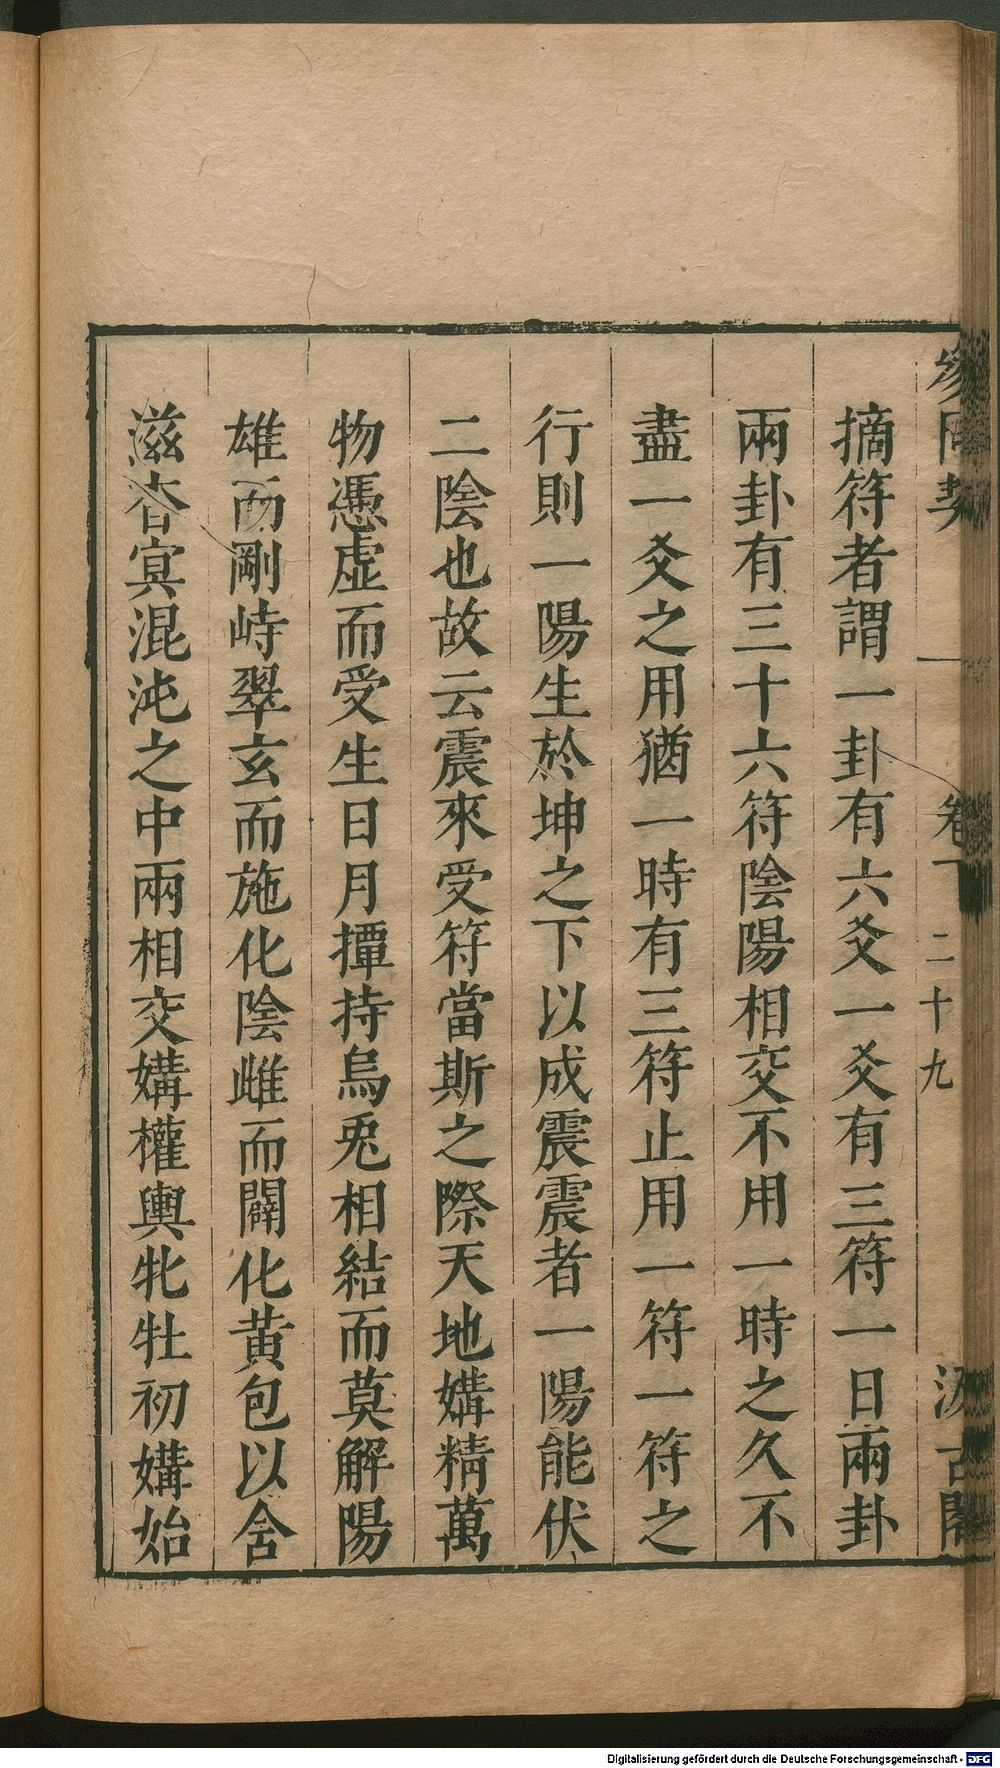 參同契 卷下 二十九 汲古閣
摘符者謂一卦有六爻一爻有三符一日兩卦
兩卦有三十六符陰陽相交不用一時之久不
盡一爻之用猶一時有三符止用一符一符之
行則一陽生於坤之下以成震震者一陽能伏
二陰也故云震來受符當斯之際天地媾精萬
物憑虛而受生日月撢持烏兎相結而莫解陽
雄而剛峙翠玄而施化陰雌而闢化黃包以舍
滋杳㝠混沌之中兩相交媾權輿牝牡初媾始
Digitalisierung gefördert durch die Deutsche Forschungsgemeinschaft - DFG